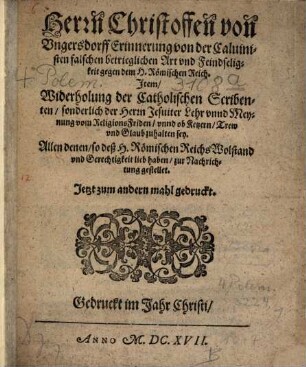 Herrn Christoffen von
Vngersdorff Erinnerung von der Caluini-
sten falschen betrieglichen Art vnd Feindselig-
keit gegen dem H. Römischen Reich.
Item/
Widerholung der Catholischen Scriben-
ten/ sonderlich der Herrn Jesuiter Lehr vnnd Mey-
nung vom ReligionsFriden/ vnnd ob Ketzern/ Trew
vnd Glaub zuhalten sey.
Allen denen/ so deß H. Römischen Reichs Wolstand
vnd Gerechtigkeit lieb haben/ zur Nachrich-
tung gestellet.
Jetzt zum andern mahl gedruckt.
Gedruckt im Jahr Christi/
ANNO M. DC. XVII.